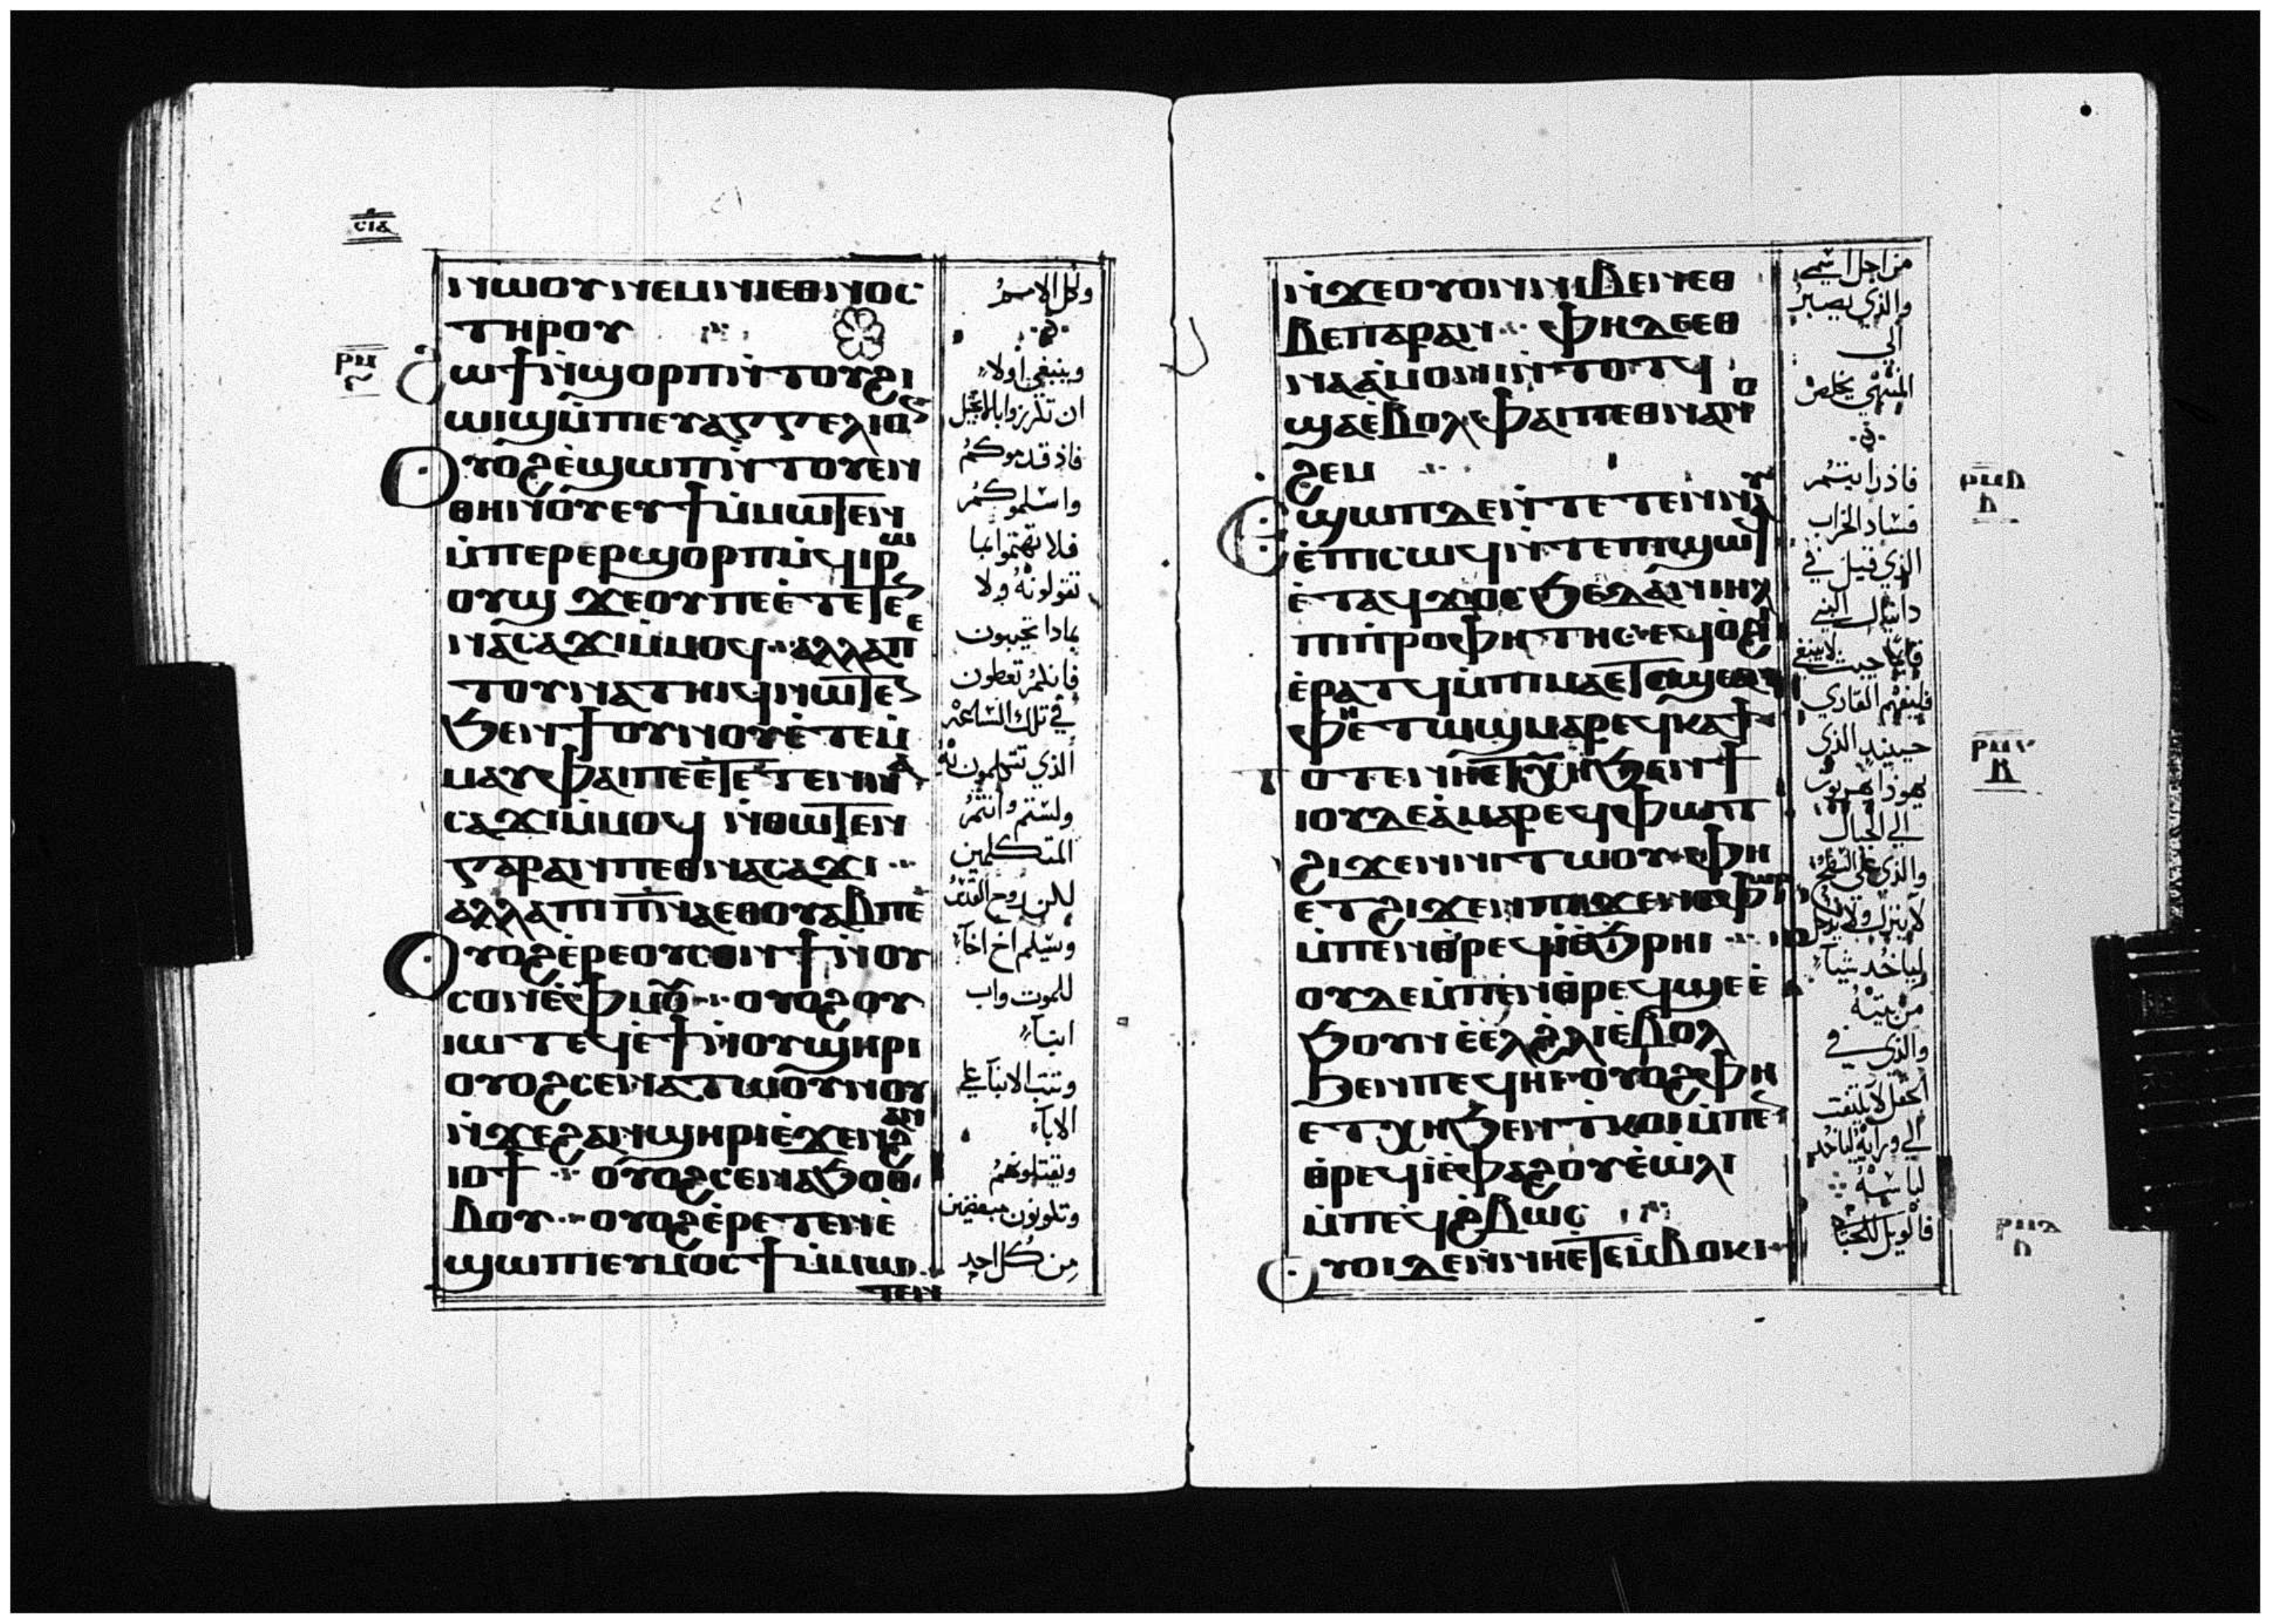 ⲥⲓⲁ
ⲛⲱⲟⲩ ⲛⲉⲙ ⲛⲓⲉⲑⲛⲟⲥ
ⲧⲏⲣⲟⲩ
ⲣⲡ
ϩⲱϯ ⲛϣⲟⲣⲡ ⲛⲧⲟⲩϩⲓ
ⲱⲓϣ ⲙⲡⲓⲉⲩⲁⲅⲅⲉⲗⲓⲟⲛ
ⲟⲩⲟϩ ⲉϣⲱⲡ ⲛⲧⲟⲩⲉⲛ
ⲑⲏⲛⲟⲩ ⲉⲩϯ ⲙⲙⲱⲧⲉⲛ
ⲙⲡⲉⲣⲉⲣϣⲟⲣⲡ ⲛϥⲓⲣⲱ
ⲟⲩϣ ϫⲉ ⲟⲩ ⲡⲉ ⲉⲧⲉⲧⲉⲛ
ⲛⲁⲥⲁϫⲓ ⲙⲙⲟϥ ⲁⲗⲗⲁ ⲡⲉ
ⲧⲟⲩⲛⲁⲧⲏⲓϥ ⲛⲱⲧⲉⲛ
ϧⲉⲛ ϯⲟⲩⲛⲟⲩ ⲉⲧⲉⲙ
ⲙⲁⲩ ⲫⲁⲓ ⲡⲉ ⲉⲧⲉⲧⲉⲛⲛⲁ
ⲥⲁϫⲓ ⲙⲙⲟϥ ⲛⲑⲱⲧⲉⲛ
ⲅⲁⲣ ⲁⲛ ⲡⲉⲑⲛⲁⲥⲁϫⲓ
ⲁⲗⲗⲁ ⲡⲓⲡⲛⲁ ⲉⲑⲟⲩⲁⲃ ⲡⲉ
ⲟⲩⲟϩ ⲉⲣⲉ ⲟⲩⲥⲟⲛ ϯ ⲛⲟⲩ
ⲥⲟⲛ ⲉⲫⲙⲟⲩ ⲟⲩⲟϩ ⲟⲩ
ⲓⲱⲧ ⲉϥⲉϯ ⲛⲟⲩϣⲏⲣⲓ
ⲟⲩⲟϩ ⲥⲉⲛⲁⲧⲱⲟⲩⲛⲟⲩ
ⲛϫⲉ ϩⲁⲛϣⲏⲣⲓ ⲉϫⲉⲛ ϩⲁⲛ
ⲓⲟϯ ⲟⲩⲟϩ ⲥⲉⲛⲁϧⲟⲑ
ⲃⲟⲩ ⲟⲩⲟϩ ⲉⲣⲉⲧⲉⲛⲉ
ϣⲱⲡⲓ ⲉⲩⲙⲟⲥϯ ⲙⲙⲱ
ⲧⲉⲛ
وكل الامم
وينبغي اولاً
ان تكرزوا بالانجيل
فاذ قدموكم
واسلموكم
فلا تهتموا بما
تقولونه ولا
بماذا تجيبون
فانكم تعطون
في تلك الساعة
الذي تتكلمون به
ولستم وانتم
المتكلمين
لكن روح القدس
وسيسلم اخ اخاً
للموت واب
ابناً
وتثب الابنا على
الاباء
ويقتلونهم
وتكونون مبغضين
من كل احد
ⲛϫⲉ ⲟⲩⲟⲛ ⲛⲓⲃⲉⲛ ⲉⲑ
ⲃⲉ ⲡⲁⲣⲁⲛ ⲫⲏ ⲇⲉ ⲉⲑ
ⲛⲁⲁⲙⲟⲛⲓ ⲛⲧⲟⲧϥ
ϣⲁ ⲉⲃⲟⲗ ⲫⲁⲓ ⲡⲉⲑⲛⲁⲛⲟ
ϩⲉⲙ
ⲉϣⲱⲡ ⲇⲉ ⲛⲧⲉⲧⲉⲛⲛⲁⲩ
ⲉⲡⲓⲥⲱϥ ⲛⲧⲉ ⲡϣⲱϥ
ⲉⲧⲁϥϫⲟⲥ ϧⲉ ⲇⲁⲛⲓⲏⲗ
ⲡⲓⲡⲣⲟⲫⲏⲧⲏⲥ ⲉϥⲟϩⲓ
ⲉⲣⲁⲧϥ ⲙⲡⲓⲙⲁ ⲉⲧⲥϣⲉ ⲁⲛ
ⲫⲏ ⲉⲧⲱϣ ⲙⲁⲣⲉϥⲕⲁϯ
ⲧⲟⲧⲉ ⲛⲏ ⲉⲧⲭⲏ ϧⲉⲛ ϯ
ⲓⲟⲩⲇⲉⲁ ⲙⲁⲣⲉϥⲫⲱⲧ
ϩⲓϫⲉⲛ ⲛⲓⲧⲱⲟⲩ ⲫⲏ
ⲉⲧϩⲓϫⲉⲛ ⲡⲓϫⲉⲛⲉⲫⲱⲣ
ⲙⲡⲉⲛⲑⲣⲉϥⲓ ⲉϧⲣⲏⲓ
ⲟⲩⲇⲉ ⲙⲡⲉⲛⲑⲣⲉϥϣⲉ ⲉ
ϧⲟⲩⲛ ⲉⲉⲗ ϩⲗⲓ ⲉⲃⲟⲗ
ϧⲉⲛ ⲡⲉϥⲏⲓ ⲟⲩⲟϩ ⲫⲏ
ⲉⲧⲭⲏ ϧⲉⲛ ⲧⲕⲟⲓ ⲙⲡⲉⲛ
ⲑⲣⲉϥⲓ ⲉⲫⲁϩⲟⲩ ⲉⲱⲗⲓ
ⲙⲡⲉϥϩⲃⲱⲥ
ⲟⲩⲟⲓ ⲇⲉ ⲛⲛⲏ ⲉⲧⲉⲙⲃⲟⲕⲓ
من اجل اسمي
والذي يصبر
الى
المنتهى يخلص
فاذا رايتم
فساد الخراب
الذي قيل في
دانيال النبي
قايما حيث لا ينبغي
فليفهم القاري
حينيذ الذي
يهوذا يهربون
الي الجبال
والذي علي السطح
لا ينزل ولا يدخل
لياخذ شيآ
من بيته
والذي في
الحقل لا يلتفت
الي ورايه لياخذ
لباسه
فالويل للحبالى